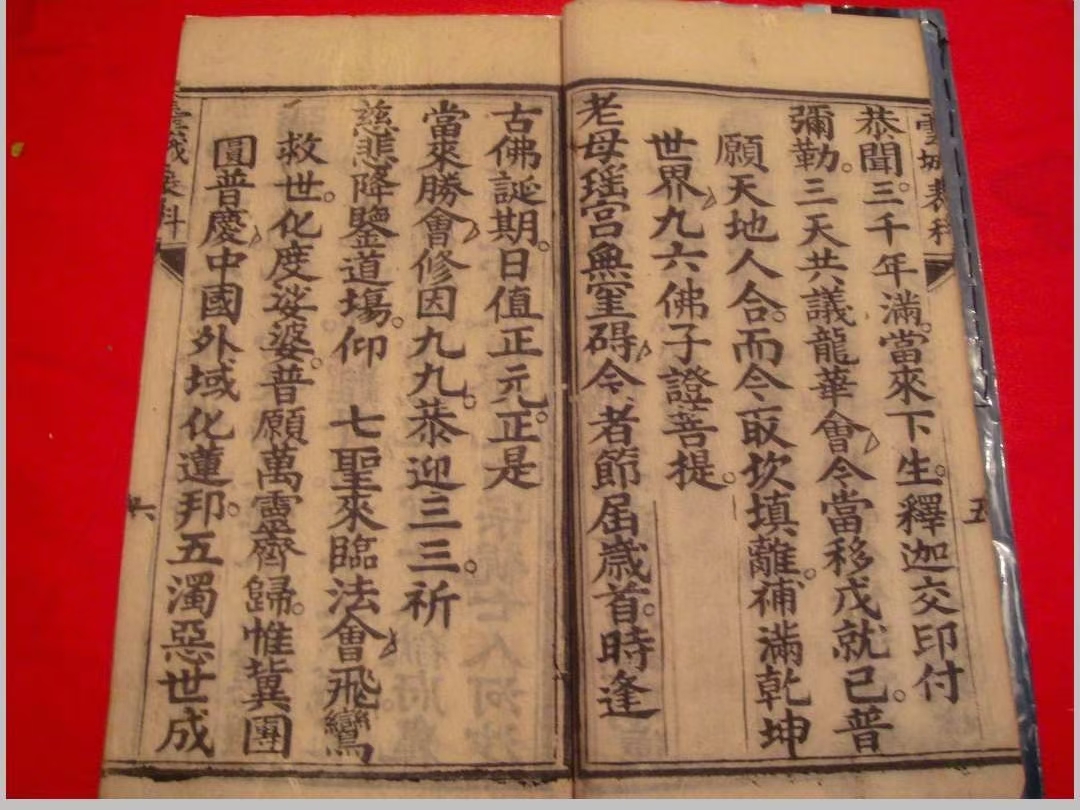 恭聞三千年滿。當來下生。釋迦交印付
彌勒。三天共議龍華會令當移戊就己。普
願天地人合。而今取坎填離。補滿乾坤
世界九六佛子證菩提。
老母瑶宮無窒碍令者節屆歲首。時逢
五
古佛誕期。日值正元。正是
當來勝會修因九九。恭迎三三。祈
慈悲降鑒道塲。仰 七聖來臨法會飛鸞
救世。化度娑婆。普願萬靈齊歸。惟冀團
圓普慶中國外域化蓮邦。五濁惡世成
表科
六